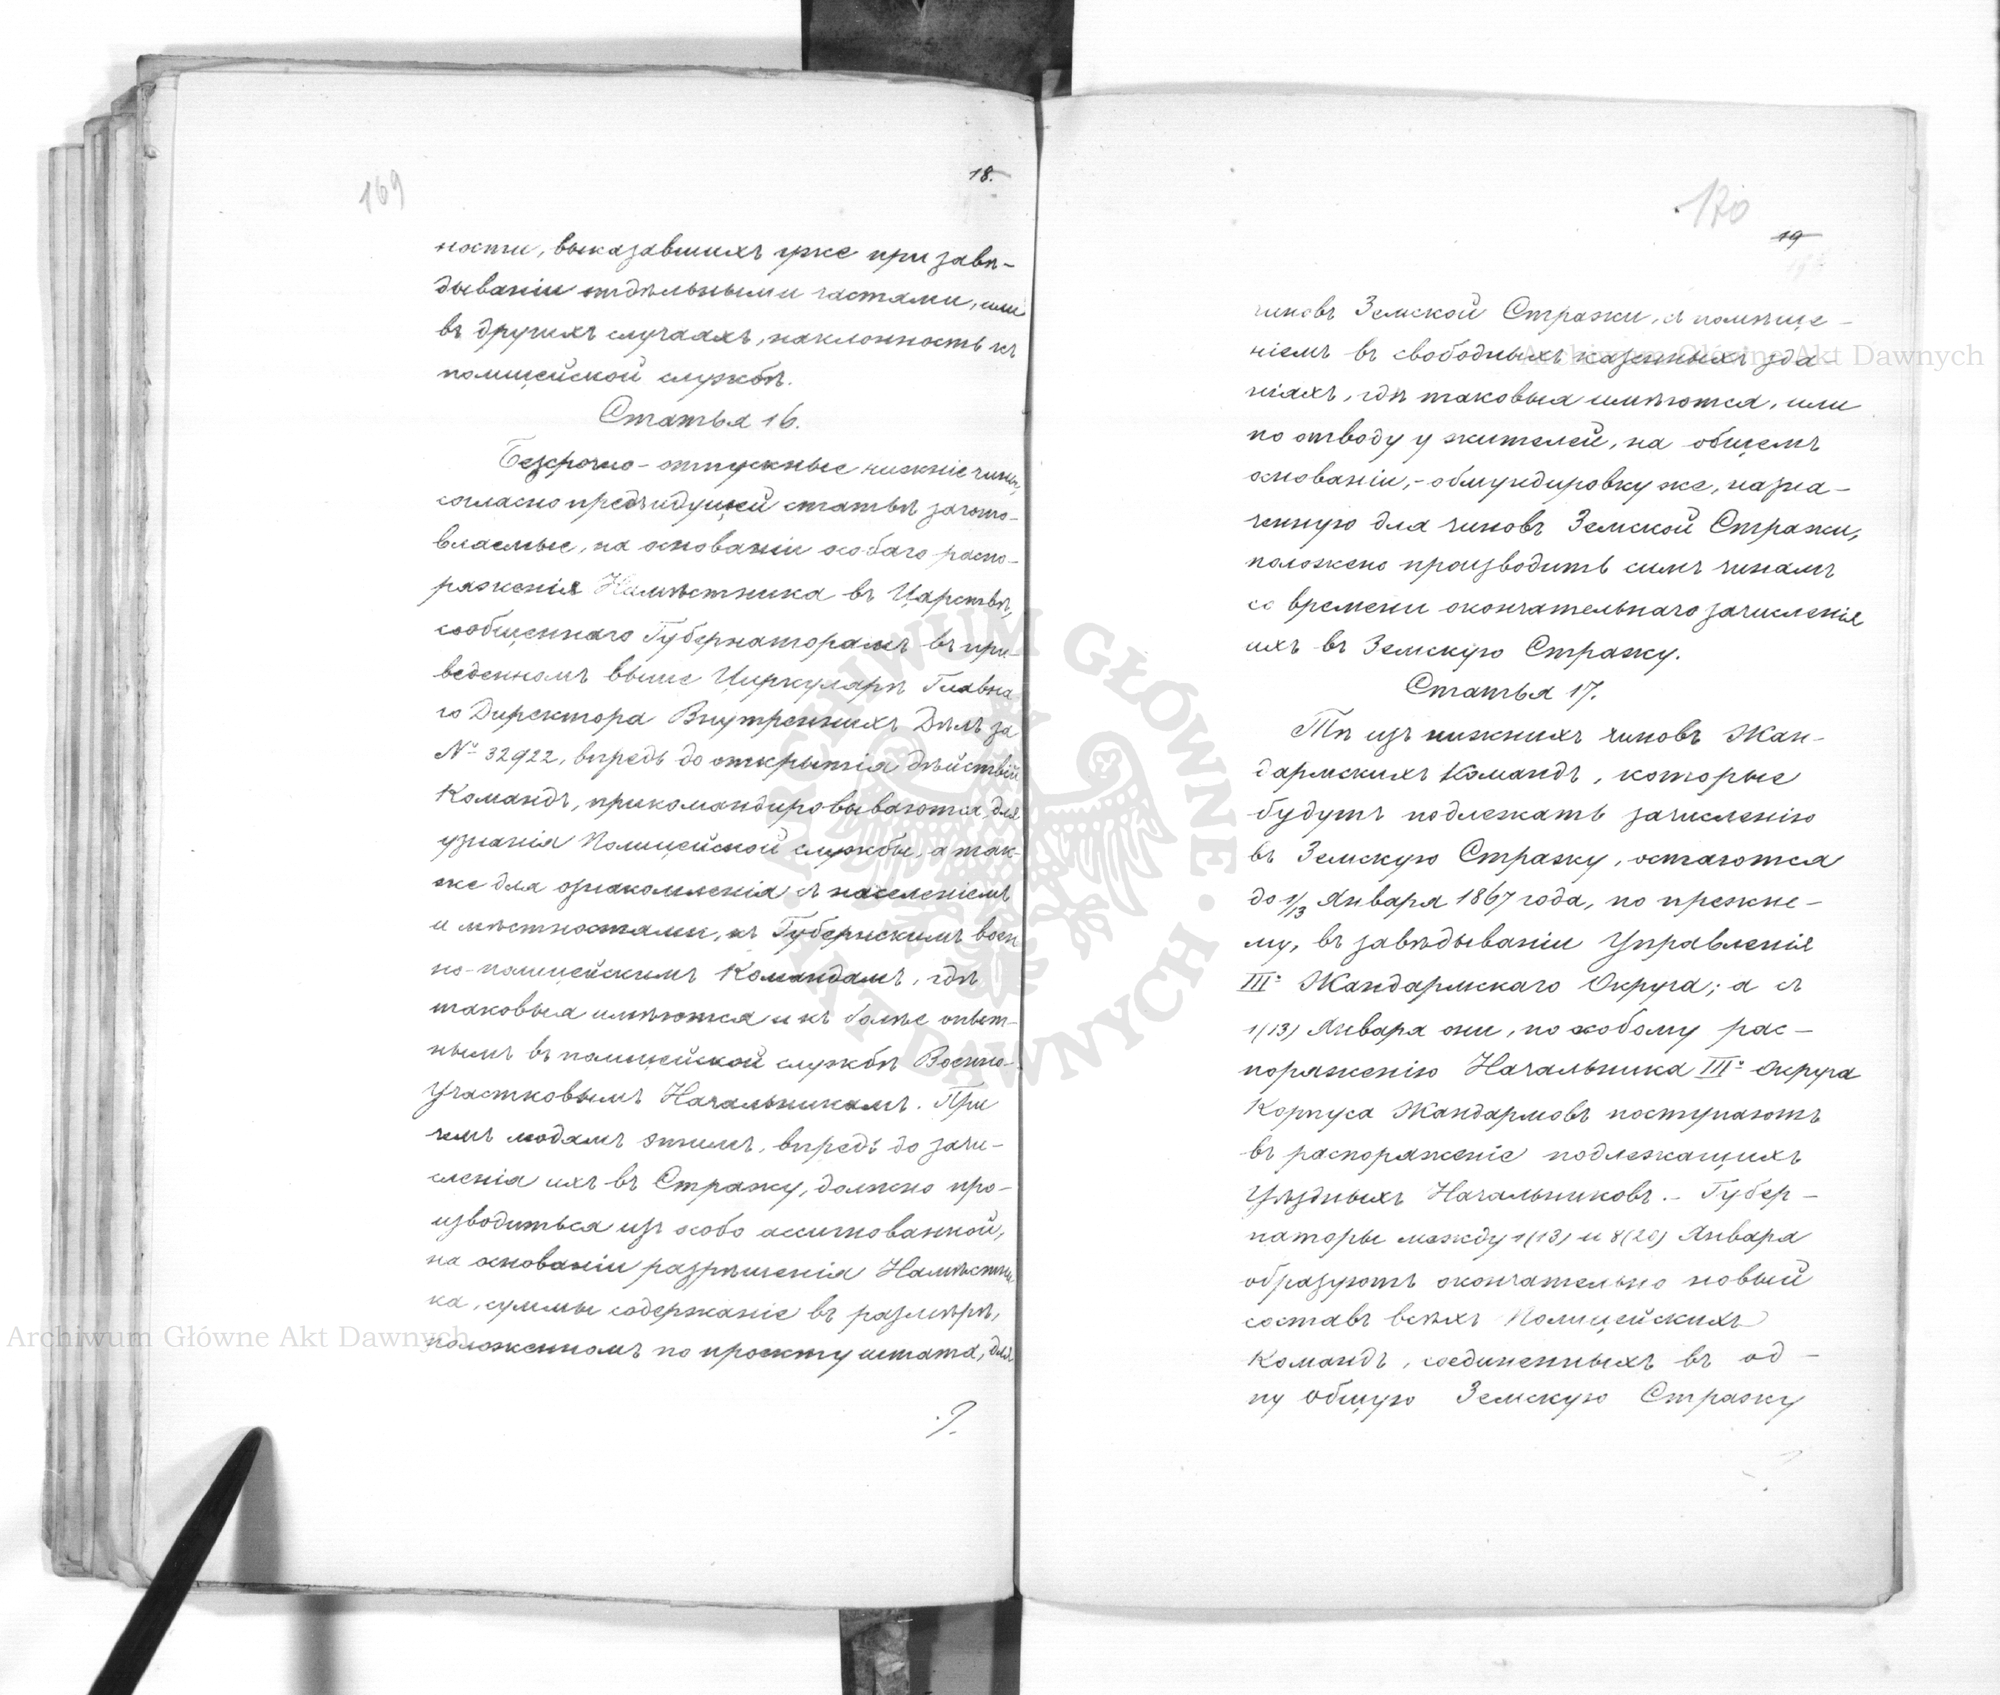 169
18.
ности, выказавшихъ уже при завѣ-
дываніи отдѣльными частями, или
въ другихъ случаяхъ, наклонность къ
полицейской службѣ.
Статья 16.
Безсрочно-отпускные нижніе чины,
согласно предъидущей статьѣ загото-
вляемые, на основаніи особаго распо-
ряженія Намѣстника въ Царствѣ,
сообщеннаго Губернаторамъ въ при-
веденномъ выше Циркулярѣ Главна
го Директора Внутреннихъ Дѣлъ за
№ 32922, впредь до открытія дѣйствій
Командъ, прикомандировываются, для
узнанія Полицейской службы, а так-
же для ознакомленія съ населеніемъ
и мѣстностями, къ Губернскимъ воен
но-полицейскимъ Командамъ, гдѣ
таковыя имѣются и къ болѣе опыт-
нымъ въ полицейской службѣ Военно-
Участковымъ Начальникамъ. При
чемъ людямъ этимъ, впредь до зачи-
сленія ихъ въ Стражу, должно про-
изводиться изъ особо ассигнованной,
на основаніи разрѣшенія Намѣстни
ка, суммы содержаніе въ размѣрѣ,
положенномъ по проэкту штата, для
170
19
чиновъ Земской Стражи, съ помѣще-
ніемъ въ свободныхъ казенныхъ зда-
ніяхъ, гдѣ таковыя имѣются, или
по отводу у жителей, на общемъ
основаніи,- обмундировку же, назна-
ченную для чиновъ Земской Стражи,
положено производить симъ чинамъ
со времени окончательнаго зачисленія
ихъ въ Земскую Стражу.
Статья 17.
Тѣ изъ нижнихъ чиновъ Жан-
дармскихъ Командъ, которые
будутъ подлежать зачисленію
въ Земскую Стражу, остаются
до 1/13 Января 1867 года, по прежне-
му, въ завѣдываніи Управленія
III° Жандармскаго Округа; а съ
1(13) Января они, по особому рас-
поряженію Начальника III° Округа
Корпуса Жандармовъ поступаютъ
въ распоряженіе подлежащихъ
Уѣздныхъ Начальниковъ.- Губер-
наторы между 1(13) и 8(20) Января
образуютъ окончательно новый
составъ всѣхъ Полицейскихъ
Командъ, соединенныхъ въ од-
ну общую Земскую Стражу
Archiwum Główne Akt Dawnych
Archiwum Główne Akt Dawnych
ARCHIWUM GŁÓWNE AKT DAWNYCH